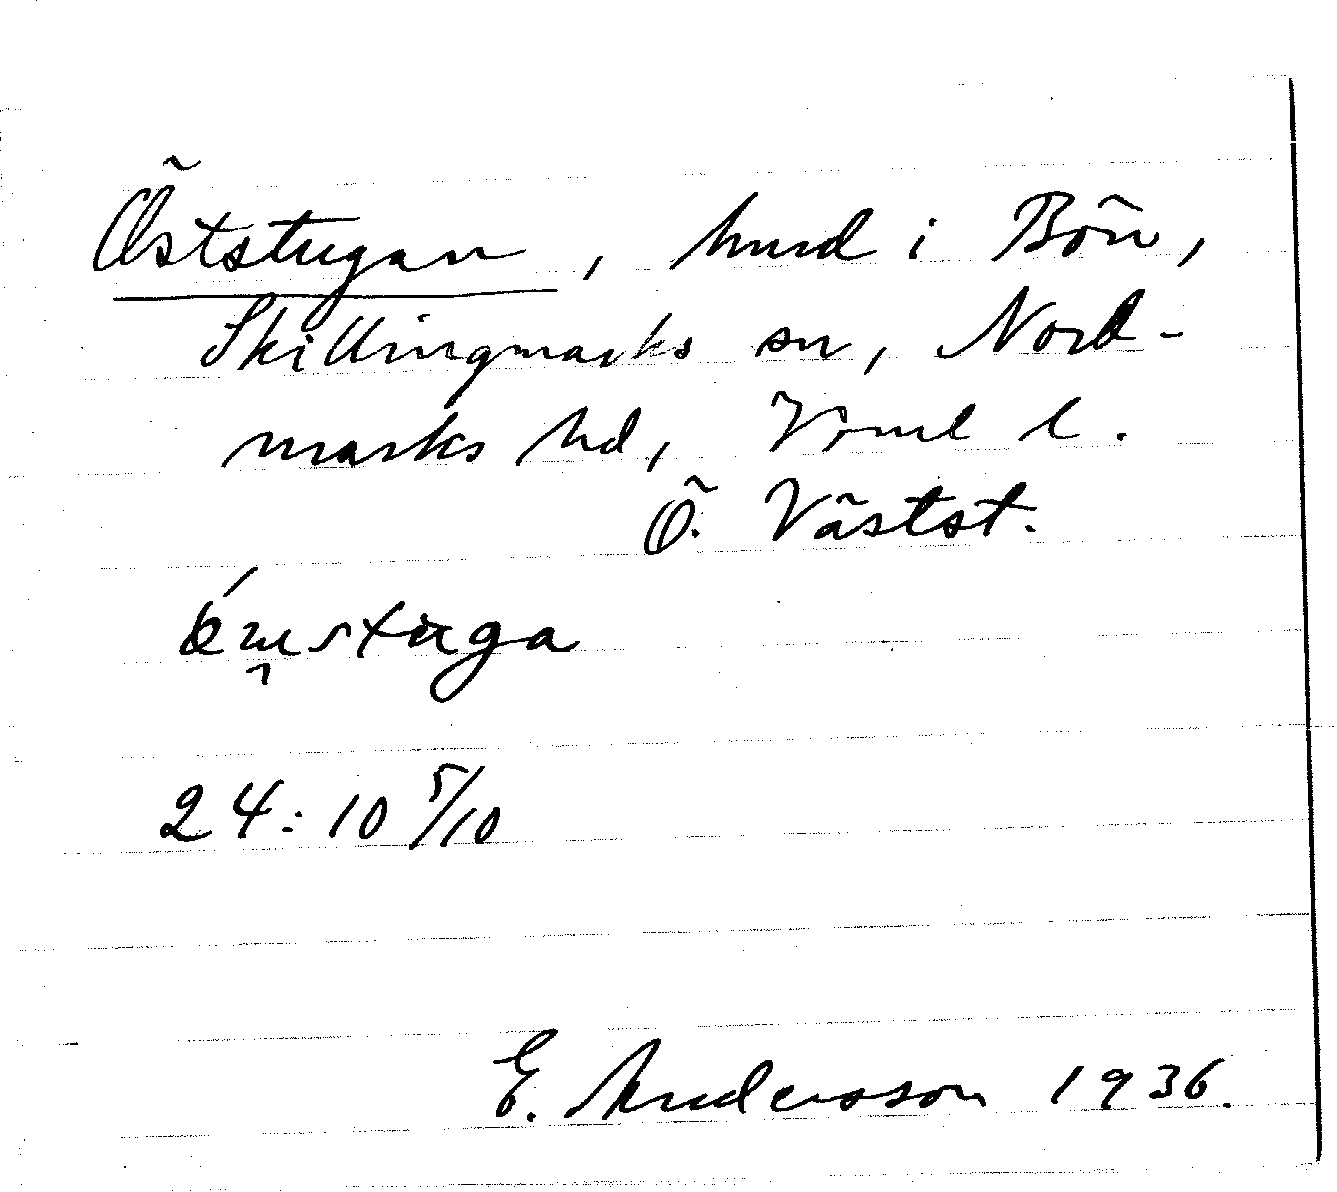 Öststugan, hmd i Bön,
Skillingmarks sn, Nord-
marks hd, Vrml l.
Ö. Västst.
24:10 5/10
E. Andersson 1936.